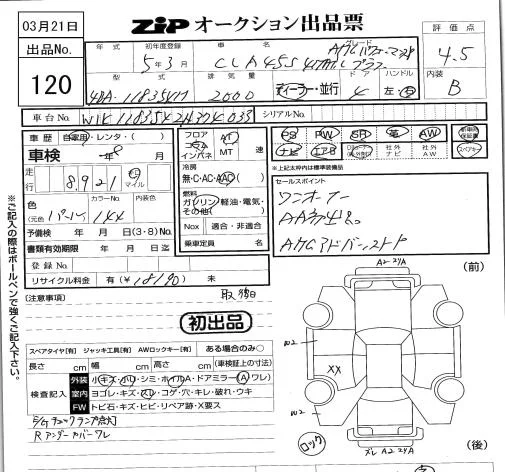 03月21日
ZIP オークション出品票
出品No.
120
年式
初年度登録
車名
グレード
5年3月
CLA45S
型式
排気量
ドア
ハンドル
2000
ディーラー・並行
4
左・右
評価点
4.5
内装
B
車台No.
シリアルNo.
車歴
自家用・レンタ・( )
車検
年 8 月
走行
8,921
km
マイル
色
(元色
パール
カラーNo.
144
内装色
予備検 年 月 日(3・8)No.
書類有効期限 年 月 日迄
登録No.
リサイクル料金 有(¥18190) 未
フロア
コラム
インパネ
AT
MT
速
冷房
無・C・AC・AAC
燃料
ガソリン・軽油・電気・
その他( )
Nox
適合・非適合
乗車定員 名
PS PW SR 革 AW
新車時保証書
ナビ エアB
社外ナビ
社外AW
スペアキー
※上記太枠内は標準装備品
セールスポイント
ワンオーナー
AA初出品。
AMGアドバンスト
(注意事項)
初出品
スペアタイヤ[有] ジャッキ工具[有] AWロックキー[有] ある場合のみ○
長さ cm 幅 cm 高さ cm (車検証上の寸法)
検査記入
外装
小キズ・小凹・シミ・ホイルA・ドアミラー(A ワレ)
室内
ヨゴレ・キズ・スレ・コゲ・穴・キレ・破れ・ウキ
FW
トビ石・キズ・ヒビ・リペア跡・X要ス
E/Gチェックランプ点灯
Rアンダーカバーワレ
※ご記入の際はボールペンで強くご記入下さい。
(前)
A2
W2
XX
W2
ロック
ズレ A2
(後)